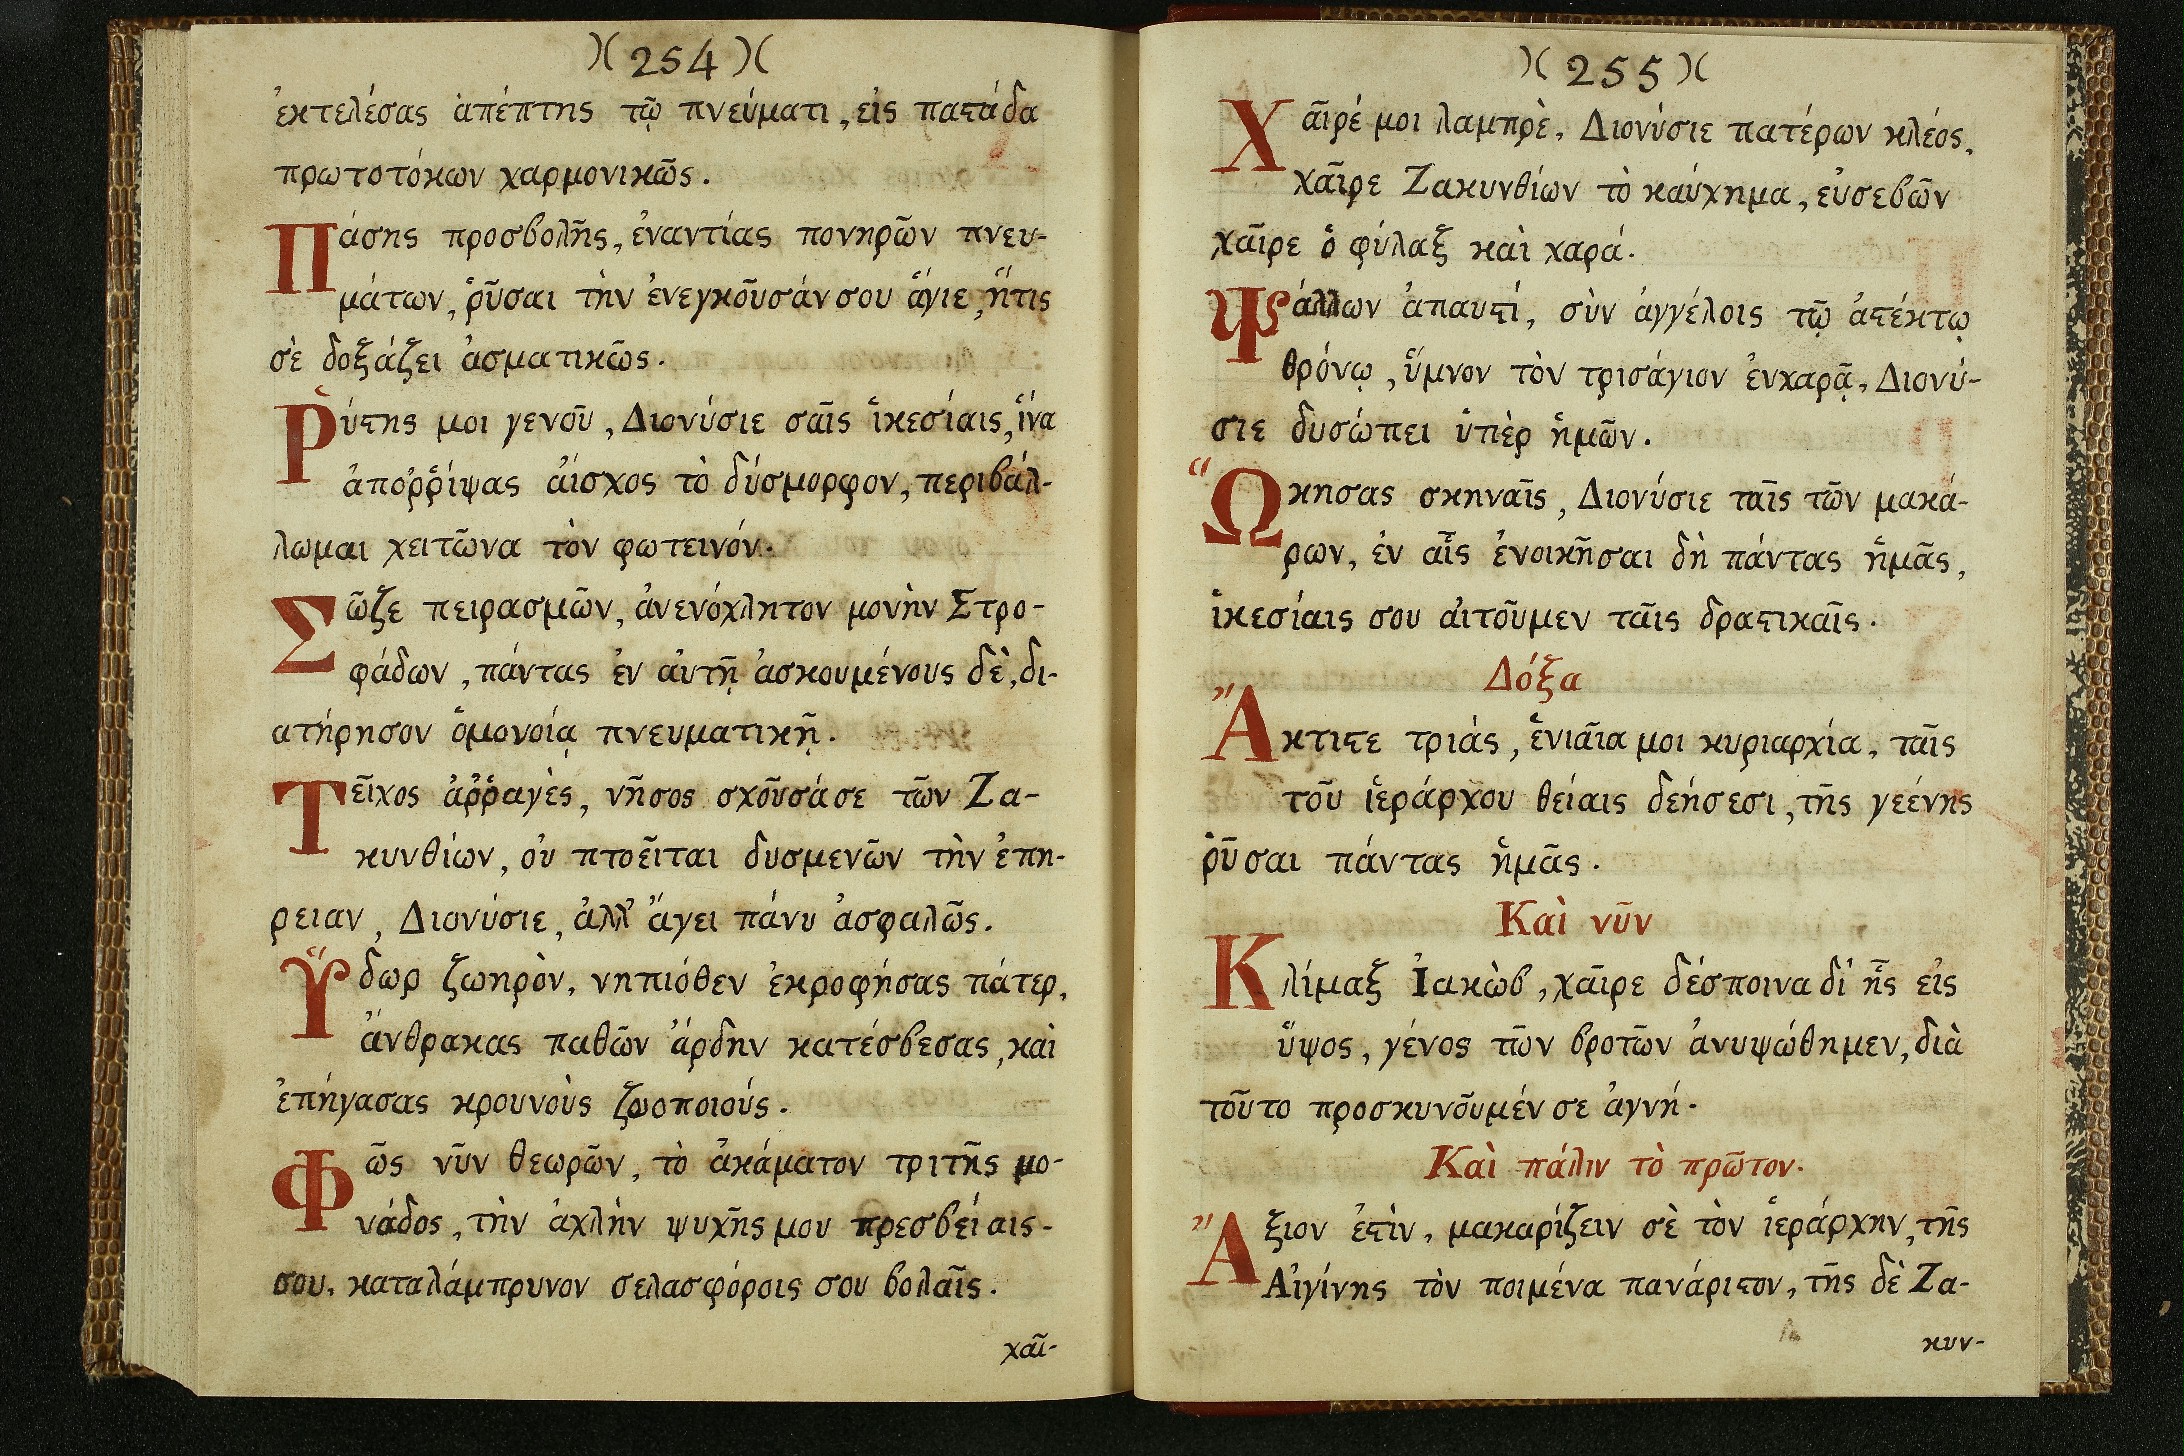 )( 254 )(
ἐκτελέσας ἀπέπτης τῷ πνεύματι, εἰς παϛάδα
πρωτοτόκων χαρμονικῶς.
Πάσης προσβολῆς, ἐναντίας πονηρῶν πνευ-
μάτων, ῥῦσαι τὴν ἐνεγκοῦσάν σου ἅγιε, ἥτις
σὲ δοξάζει ἀσματικῶς.
Ῥύϛης μοι γενοῦ, Διονύσιε σαῖς ἱκεσίαις, ἵνα
ἀποῤῥίψας αἶσχος τὸ δύσμορφον, περιβάλ-
λωμαι χειτῶνα τὸν φωτεινόν.
Σῶζε πειρασμῶν, ἀνενόχλητον μονὴν Στρο-
φάδων, πάντας ἐν αὐτῇ ἀσκουμένους δὲ, δι-
ατήρησον ὁμονοίᾳ πνευματικῇ.
Τεῖχος ἀῤῥαγὲς, νῆσος σχοῦσά σε τῶν Ζα-
κυνθίων, οὐ πτοεῖται δυσμενῶν τὴν ἐπη-
ρειαν, Διονύσιε, ἀλλ' ἄγει πάνυ ἀσφαλῶς.
Ὕδωρ ζωηρὸν, νηπιόθεν ἐκροφήσας πάτερ,
ἄνθρακας παθῶν ἄρδην κατέσβεσας, καὶ
ἐπήγασας κρουνοὺς ζωοποιούς.
Φῶς νῦν θεωρῶν, τὸ ἀκάματον τριτῆς μο-
νάδος, τὴν ἀχλὴν ψυχῆς μου πρεσβείαις-
σου, καταλάμπρυνον σελασφόροις σου βολαῖς.
χαῖ-
)( 255 )(
Χαῖρέ μοι λαμπρὲ, Διονύσιε πατέρων κλέος,
χαῖρε Ζακυνθίων τὸ καύχημα, εὐσεβῶν
χαῖρε ὁ φύλαξ καὶ χαρά.
Ψάλλων ἀπαυϛί, σὺν ἀγγέλοις τῷ ἀϛέκτῳ
θρόνῳ, ὕμνον τὸν τρισάγιον ἐνχαρᾷ, Διονύ-
σιε δυσώπει ὑπὲρ ἡμῶν.
Ὤκησας σκηναῖς, Διονύσιε ταῖς τῶν μακά-
ρων, ἐν αἷς ἐνοικῆσαι δὴ πάντας ἡμᾶς,
ἱκεσίαις σου αἰτοῦμεν ταῖς δραϛικαῖς.
Δόξα
Ἄκτιϛε τριάς, ἑνιαῖα μοι κυριαρχία, ταῖς
τοῦ ἱεράρχου θείαις δεήσεσι, τῆς γεένης
ῥῦσαι πάντας ἡμᾶς.
Καὶ νῦν
Κλίμαξ Ἰακὼβ, χαῖρε δέσποινα δι' ἧς εἰς
ὕψος, γένος τῶν βροτῶν ἀνυψώθημεν, διὰ
τοῦτο προσκυνοῦμέν σε ἁγνή.
Καὶ πάλιν τὸ πρῶτον.
Ἄξιον ἐϛὶν, μακαρίζειν σὲ τὸν ἱεράρχην, τῆς
Αἰγίνης τὸν ποιμένα πανάριϛον, τῆς δὲ Ζα-
κυν-